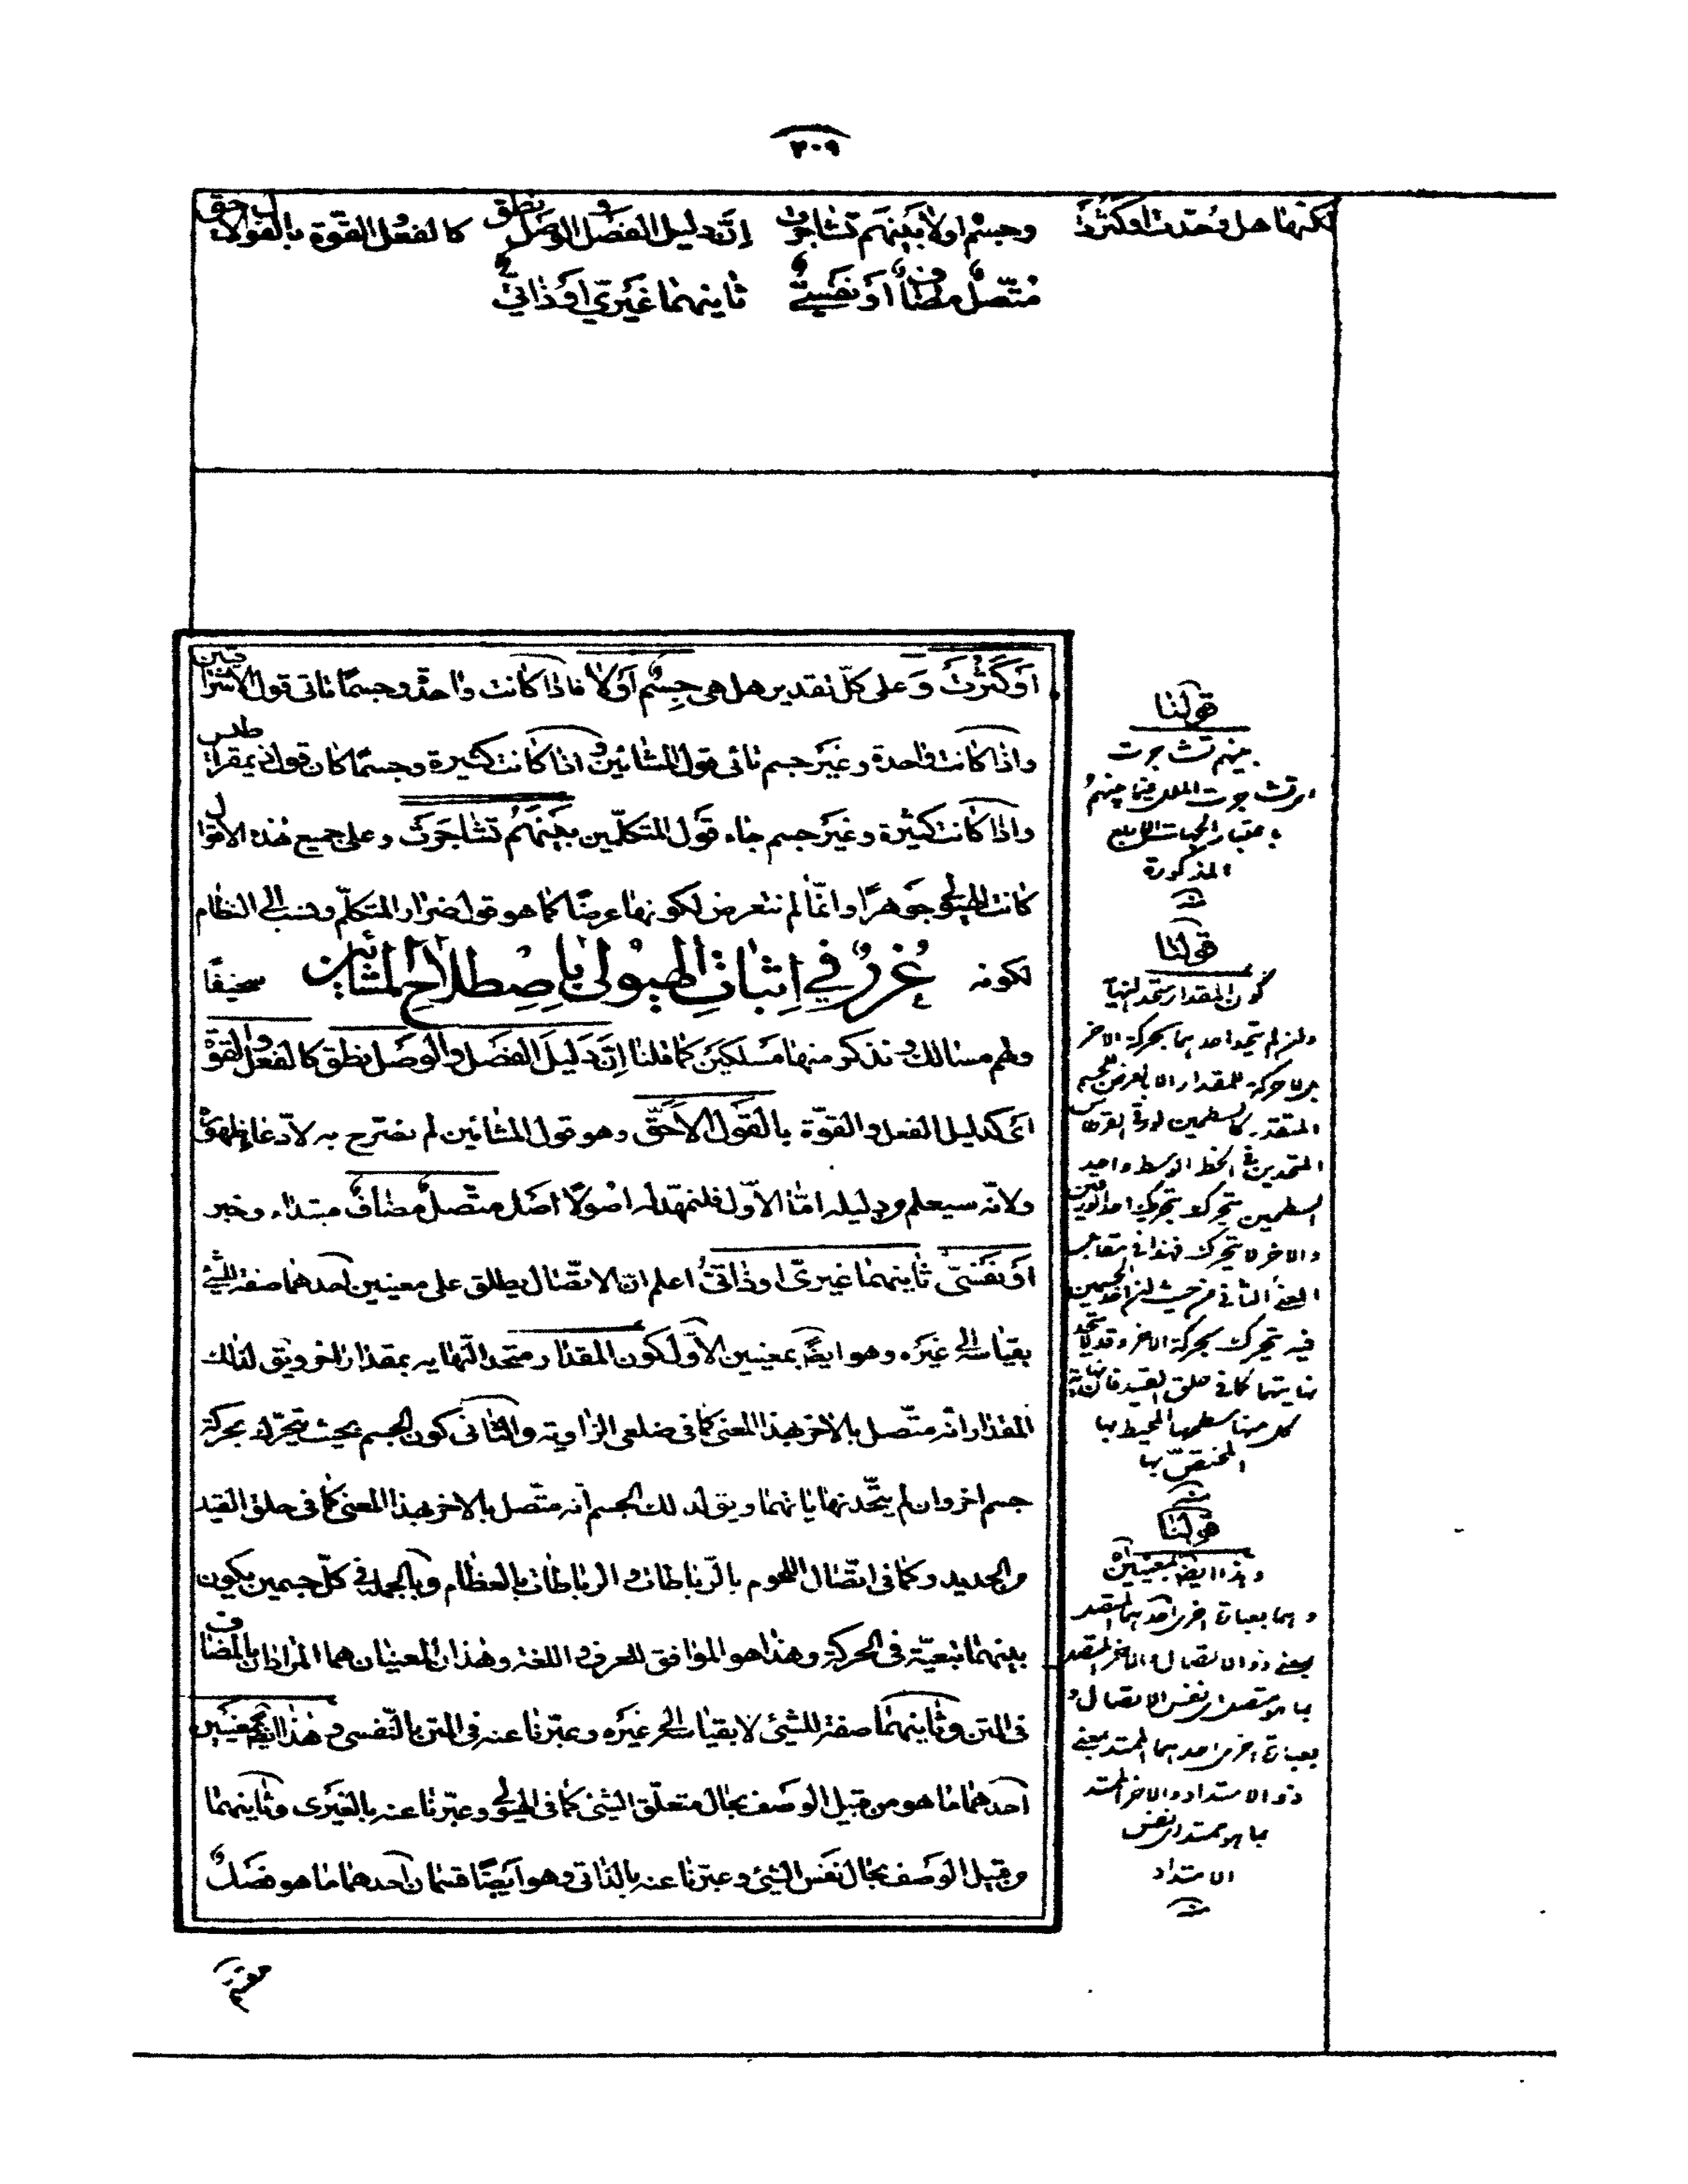 ٢٠٩
لكنّها هل وُحّدت او كثّرت وجسم اولا بينهم تشاجرت إنّ دليل الفصل والوصل نطق كالفعل والقوّة بالقول الاحق
متّصلٌ مضافٌ أو نفسيّ ثانيهما غيريّ أو ذاتيّ
أو كَثُرت وَعلى كلّ تقدير هل هى جسمٌ أَوْلا فاذا كانت واحدة وجسمًا تأتى قول الاشراقيين
واذا كانت واحدة وغير جسم تأتى قول المشائين و اذا كانت كثيرة وجسمًا كان قول ذيمقراطيس
واذا كانت كثيرة وغير جسم جاء قول المتكلّمين بينهُم تشاجرت وعلى جميع هذه الاقوال
كانت الهيولى جوهرًا وانّما لم نتعرض لكونها عرضًا كما هو قول ضرار المتكلّم ونسب الى النظام
لكونه سخيفًا
غُررٌ في اِثباتِ الهيولى باصطلاح المشائين
ولهم مسالك ونذكر منها مسلكين كما قلنا إنّ دليل الفصل والوصل نطق كالفعل والقوّة
اى كدليل الفعل والقوّة بالقول الاحقّ وهو قول المشائين لم نصرّح به لادّعاء ظهوره
ولانّه سيعلم من دليله امّا الاوّل فلنمهّد له اصولًا اصل متّصلٌ مضافٌ مبتداء وخبر
أو نفسىّ ثانيهما غيرىّ او ذاتىّ اعلم ان الاتّصال يطلق على معنيين أحدهما صفة للشئ
بقياسه الى غيره وهو ايضًا بمعنيين الاوّل كون المقدار متحد النهاية بمقدار اخر ويق لذلك
المقدار انّه متّصل بالاخر بهذا المعنى كما فى ضلعى الزاوية والثانى كون الجسم بحيث يتحرّك بحركة
جسم اخر وان لم يتّحد نهاياتهما ويق لذلك الجسم انه متّصل بالاخر بهذا المعنى كما فى حلق القيد
من الحديد وكما فى اتّصال اللحوم بالرّباطات والرباطات بالعظام وبالجملة فى كلّ جسمين يكون
بينهما تبعيّة فى الحركة وهذا هو الموافق للعرف و اللغة وهذان المعنيان هما المرادان بالمضاف
فى المتن وثانيهما صفة للشئ لا بقياسه الى غيره وعبّرنا عنه فى المتن بالنّفسى و هذا ايضًا بمعنيين
أحدهما ما هو من قبيل الوصف بحال متعلّق الشئ كما فى الهيولى وعبّرنا عنه بالغيرى وثانيهما
من قبيل الوصف بحال نفس الشئ وعبّرنا عنه بالذاتى وهو أيضًا قسمان أحدهما ما هو فصلٌ
قولنا
بينهم تشاجرت
اى تشاجرت الملل فيما بينهم
باعتبار الجهات الاربع
المذكورة
منه
قولنا
كون المقدار متحد النهاية
وان لم يتحرك احدهما بحركة الاخر
بل لا حركة للمقدار الا بالعرض للجسم
المتقدر كالسطحين لورقى القرطاس
المتحدين فى الخط الوسط واحد
السطحين يتحرك بتحريك احد الورقين
والاخر لا يتحرك فهذا فى مقابل
المعنى الثانى من حيث ان احد الجسمين
فيه يتحرك بحركة الاخر وقد لا يتحد
نهايتهما كما فى حلق القيد فان نهاية
كل منها سطحها المحيط بها
المختص بها
منه
قولنا
وهذا ايضا بمعنيين اه
وهما بعبارة اخرى احدهما المتصل
بمعنى ذو الاتصال والاخر المتصل
بما هو متصل اى نفس الاتصال و
بعبارة اخرى احدهما الممتد بمعنى
ذو الامتداد والاخر الممتد
بما هو ممتد اى نفس
الامتداد
منه